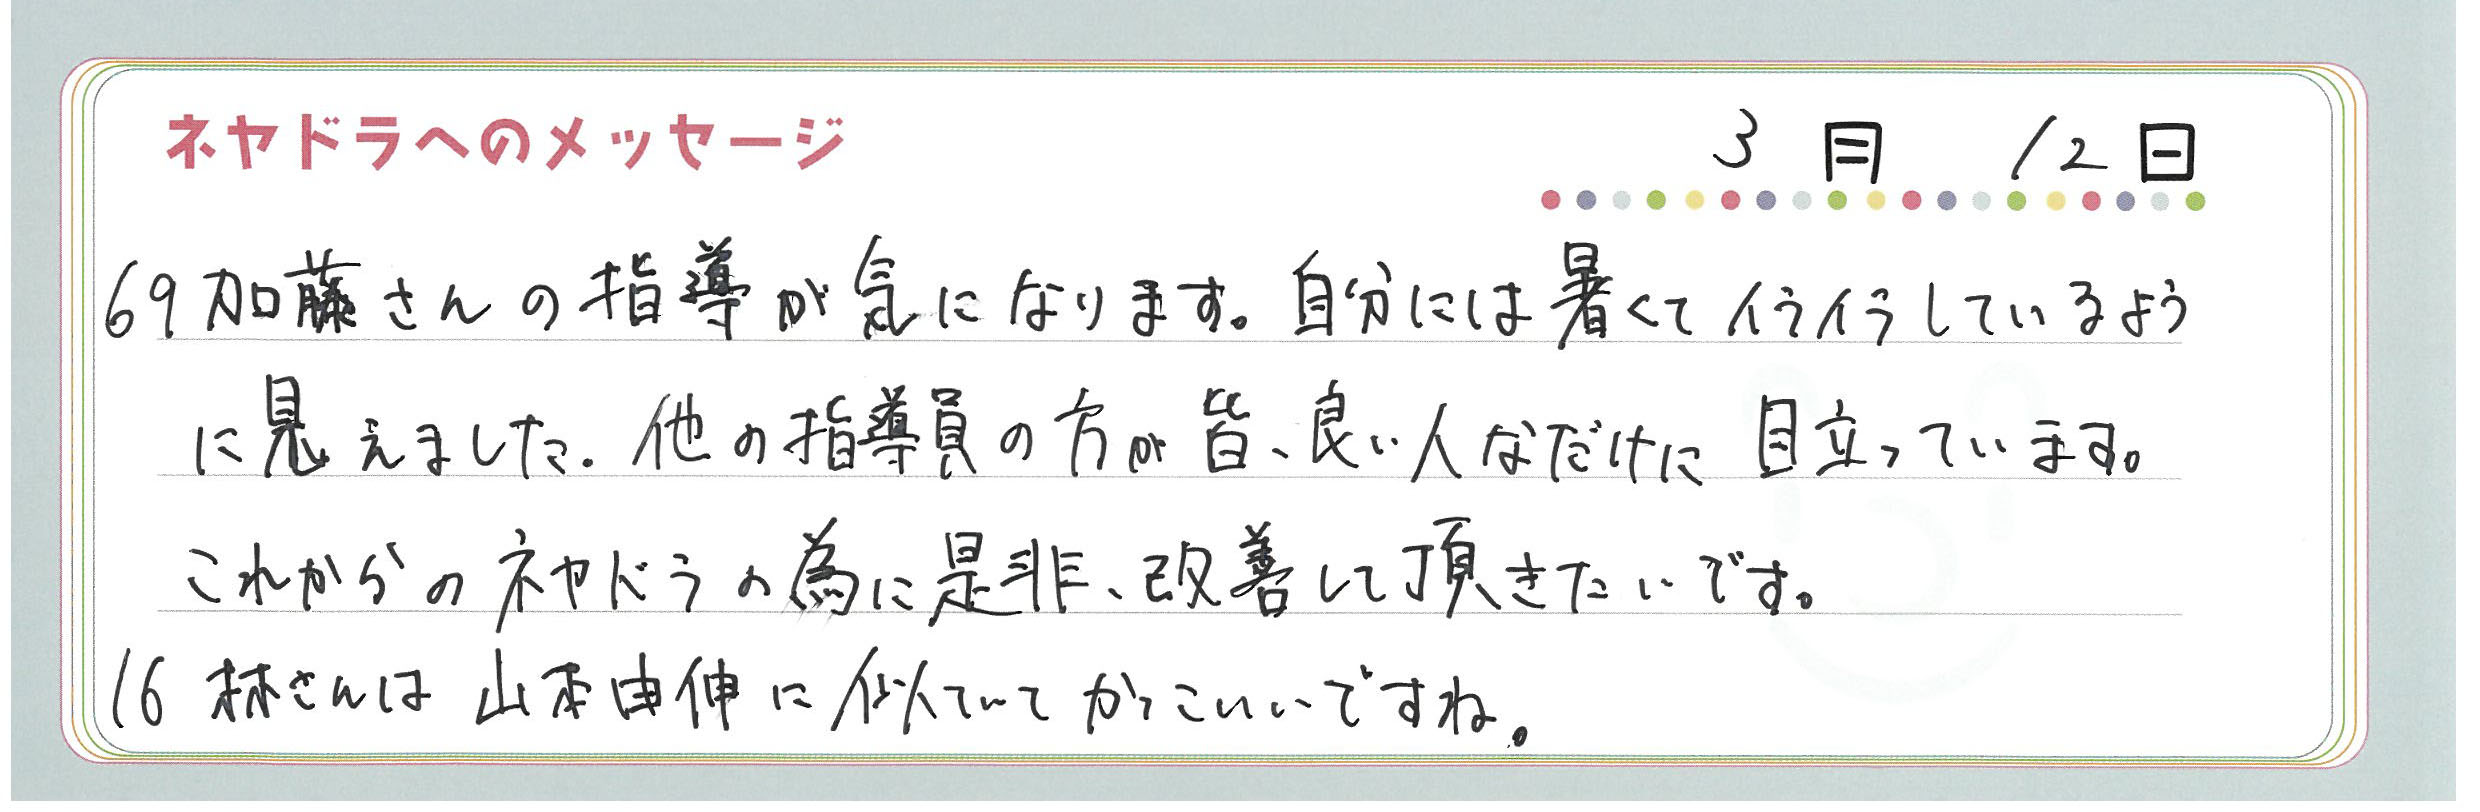 ネヤドラへのメッセージ
3月 12日
69 加藤さんの指導が気になります。自分には暑くてイライラしているよう
に見えました。他の指導員の方が皆、良い人なだけに目立っています。
これからのネヤドラの為に是非、改善して頂きたいです。
16 林さんは 山本由伸に似ていて かっこいいですね。